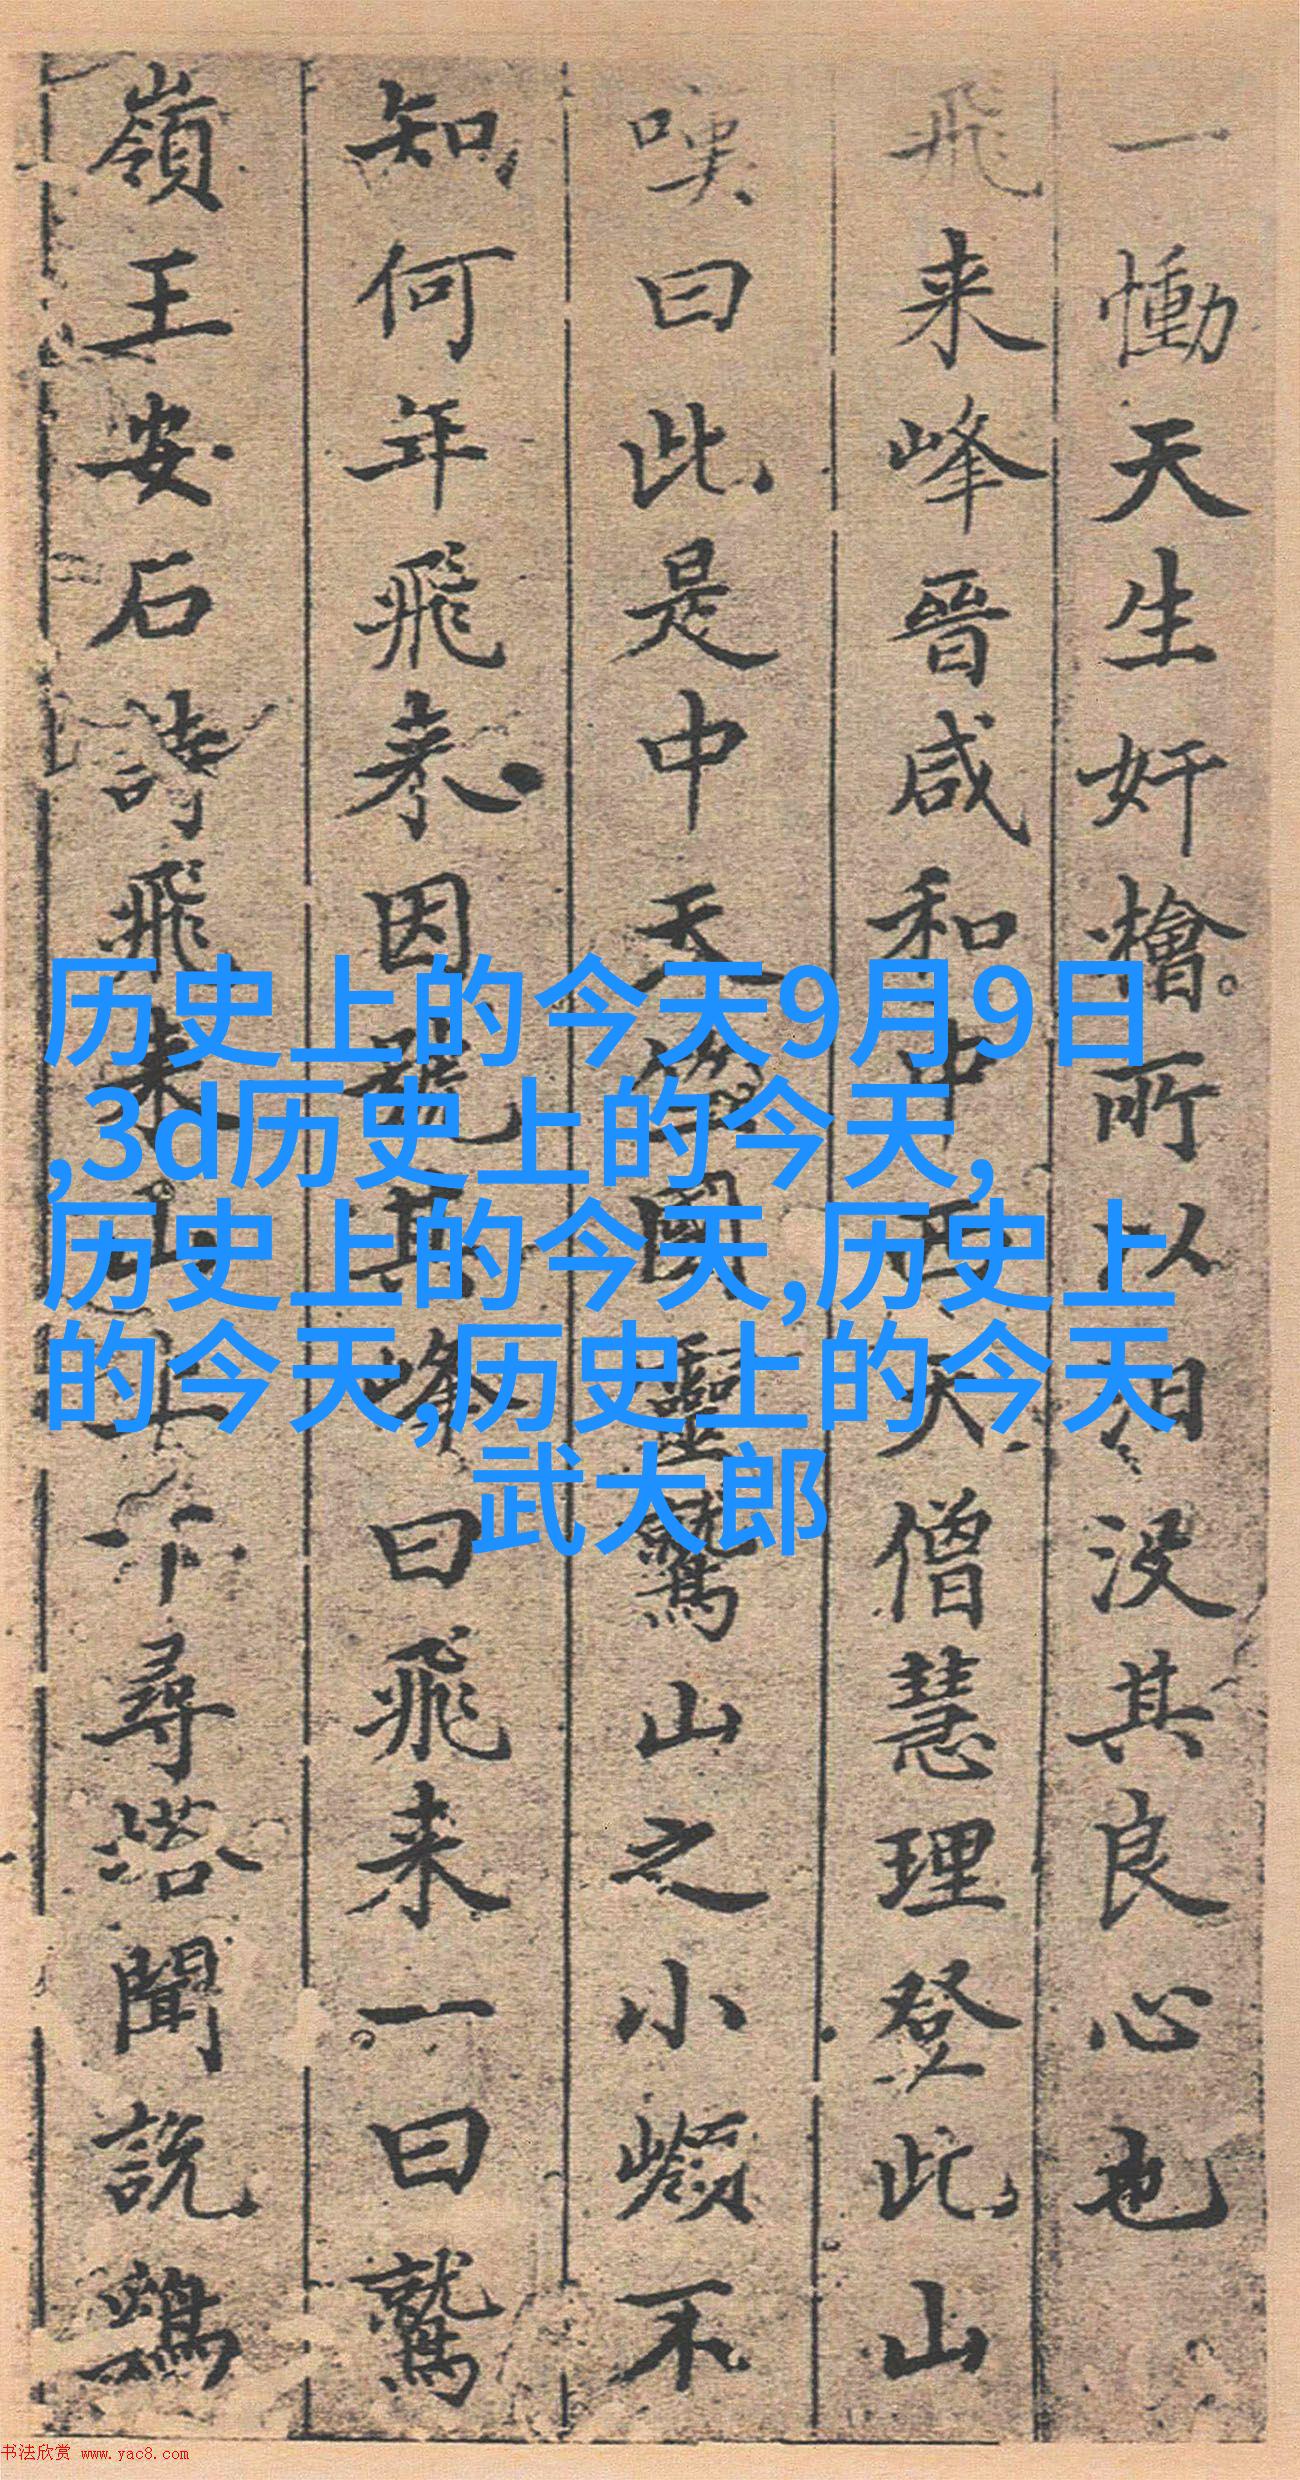 一慟天生奸檜所以汩没其良心也
飛来峰晋咸和中西天僧慧理登此山
嘆曰此是中天竺國靈鷲山之小嶺不
知何年飛来因號其峰曰飛来一曰鷲
嶺王安石詩飛来山上千尋塔聞說鷄
历史上的今天9月9日
,3d历史上的今天,
历史上的今天,历史上
的今天,历史上的今天
武大郎
书法欣赏 www.yac8.com